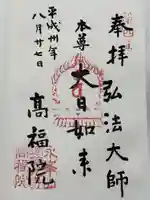 奉拝
弘法大師
本尊
大日如来
高福院
平成卅年
八月廿七日